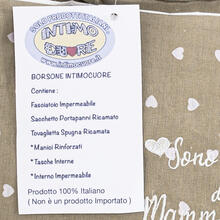 SOLO PRODOTTI ITALIANI
INTIMO
CUORE
www.intimocuore.it
BORSONE INTIMOCUORE
Contiene :
Fasciatoio Impermeabile
Sacchetto Portapanni Ricamato
Tovaglietta Spugna Ricamata
*Manici Rinforzati
*Tasche Interne
*Interno Impermeabile
Prodotto 100% Italiano
( Non è un prodotto Importato )
Sono
di
Mamma